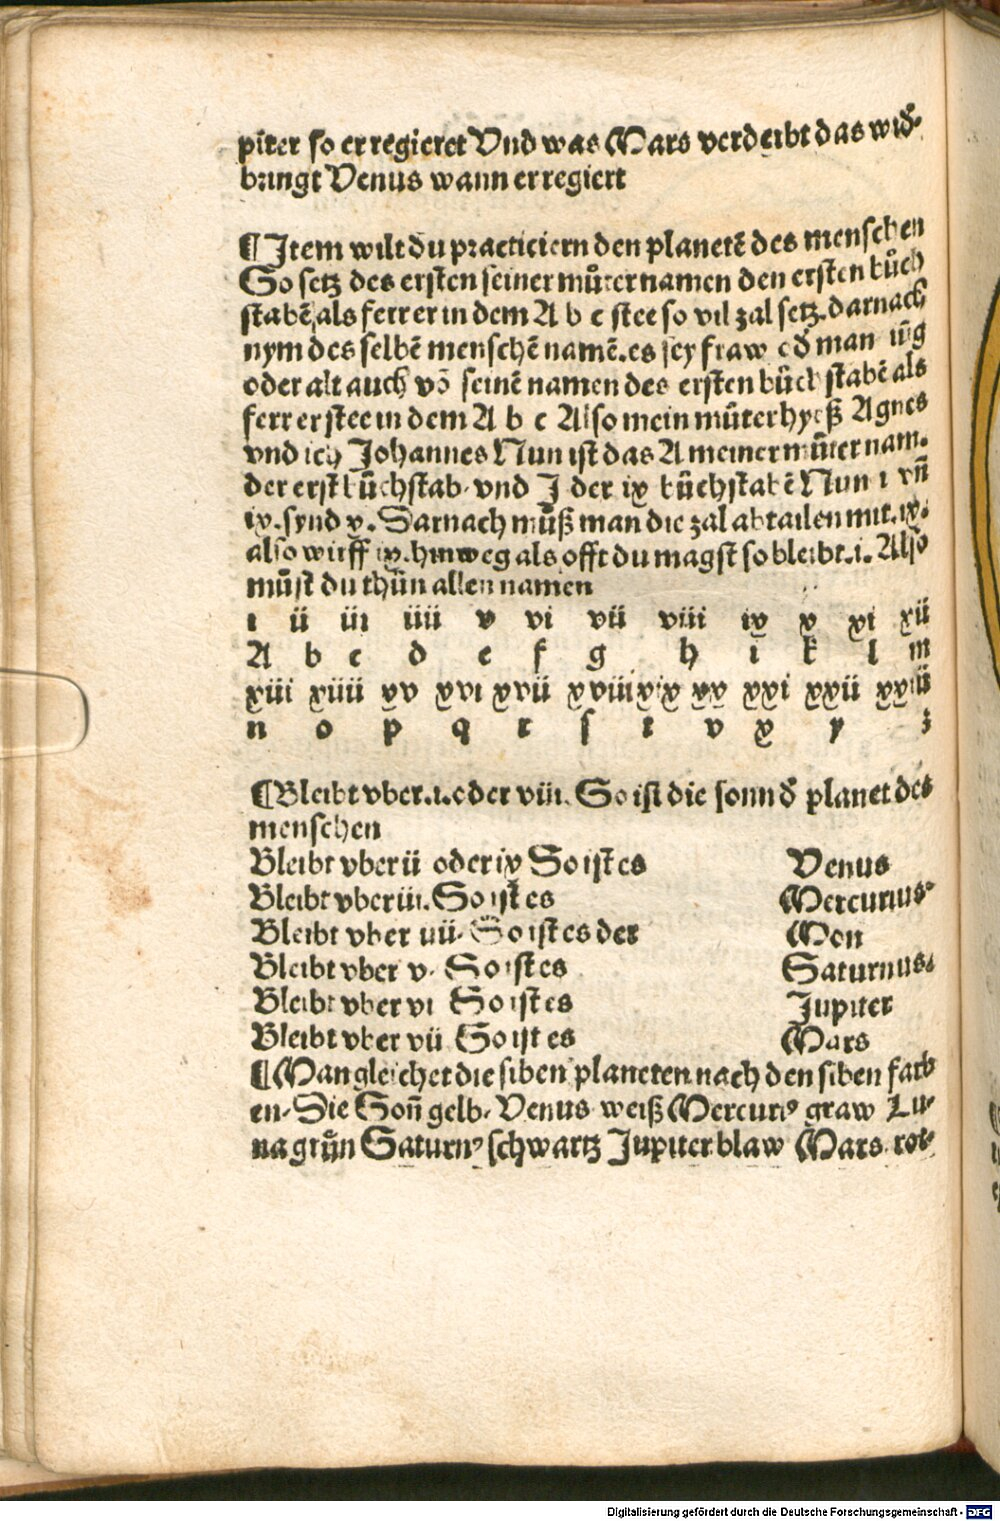 piter so er regieret Vnd was Mars verdeibt das wiđ-
bringt Venus wann er regiert
¶ Item wilt du practiciern den planetē des menschen
So setz des ersten seiner můter namen den ersten bůch
stabē als ferr er in dem A b c stee so vil zal setz. darnach
nym des selbē menschē namē. es sey fraw ođ man iũg
oder alt auch vō seinē namen des ersten bůchstabē als
ferr er stee in dem A b c Also mein můter hyeß Agnes
vnd ich Johannes Nun ist das A meiner můter nam-
der erst bůchstab. vnd J der ix bůchstabē Nun i vñ
ix. synd x. Darnach můß man die zal abtailen mit. ix.
also wirff ix. hinweg als offt du magst so bleibt. i. Also
můst du thůn allen namen
i ii iii iiii v vi vii viii ix x xi xii
A b c d e f g h i k l m
xiii xiiii xv xvi xvii xviii xix xx xxi xxii xxiii
n o p q r s t v x y z
¶ Bleibt vber. i. oder viii. So ist die sonn đ planet des
menschen
Bleibt vber ii oder ix So ist es Venus
Bleibt vber iii. So ist es Mercurius-
Bleibt vber iiii. So ist es der Mon
Bleibt vber v. So ist es Saturnus.
Bleibt vber vi So ist es Jupiter
Bleibt vber vii So ist es Mars
¶ Man gleichet die siben planeten nach den siben farb
en. Die Soñ gelb. Venus weiß Mercuriꝰ graw Lu-
na grůn Saturnꝰ schwartz Jupiter blaw Mars rot.
Digitalisierung gefördert durch die Deutsche Forschungsgemeinschaft - DFG